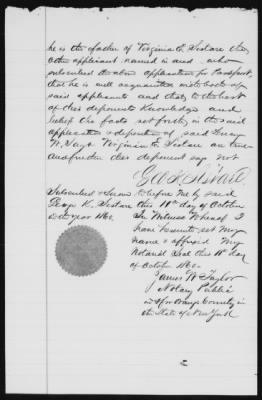 he is the father of Virginia C. Sistare the
other applicant named in and who
subscribed the above application for Passport,
that he is well acquainted with both of
said applicants and that, to the best
of this deponents Knowledge and
belief the facts set forth in the said
application & deposition of said
W. Virginia C. Sistare are true
and further this deponent says not
Geo. K. Sistare
Subscribed & Sworn to before me by said
George K. Sistare this 11th day of October
in the year 1860.
In Witness Whereof I
have hereunto set my
name & affixed my
Notarial Seal this 11th day
of October 1860.
James W. Taylor
Notary Public
in & for Orange County in
the State of New York